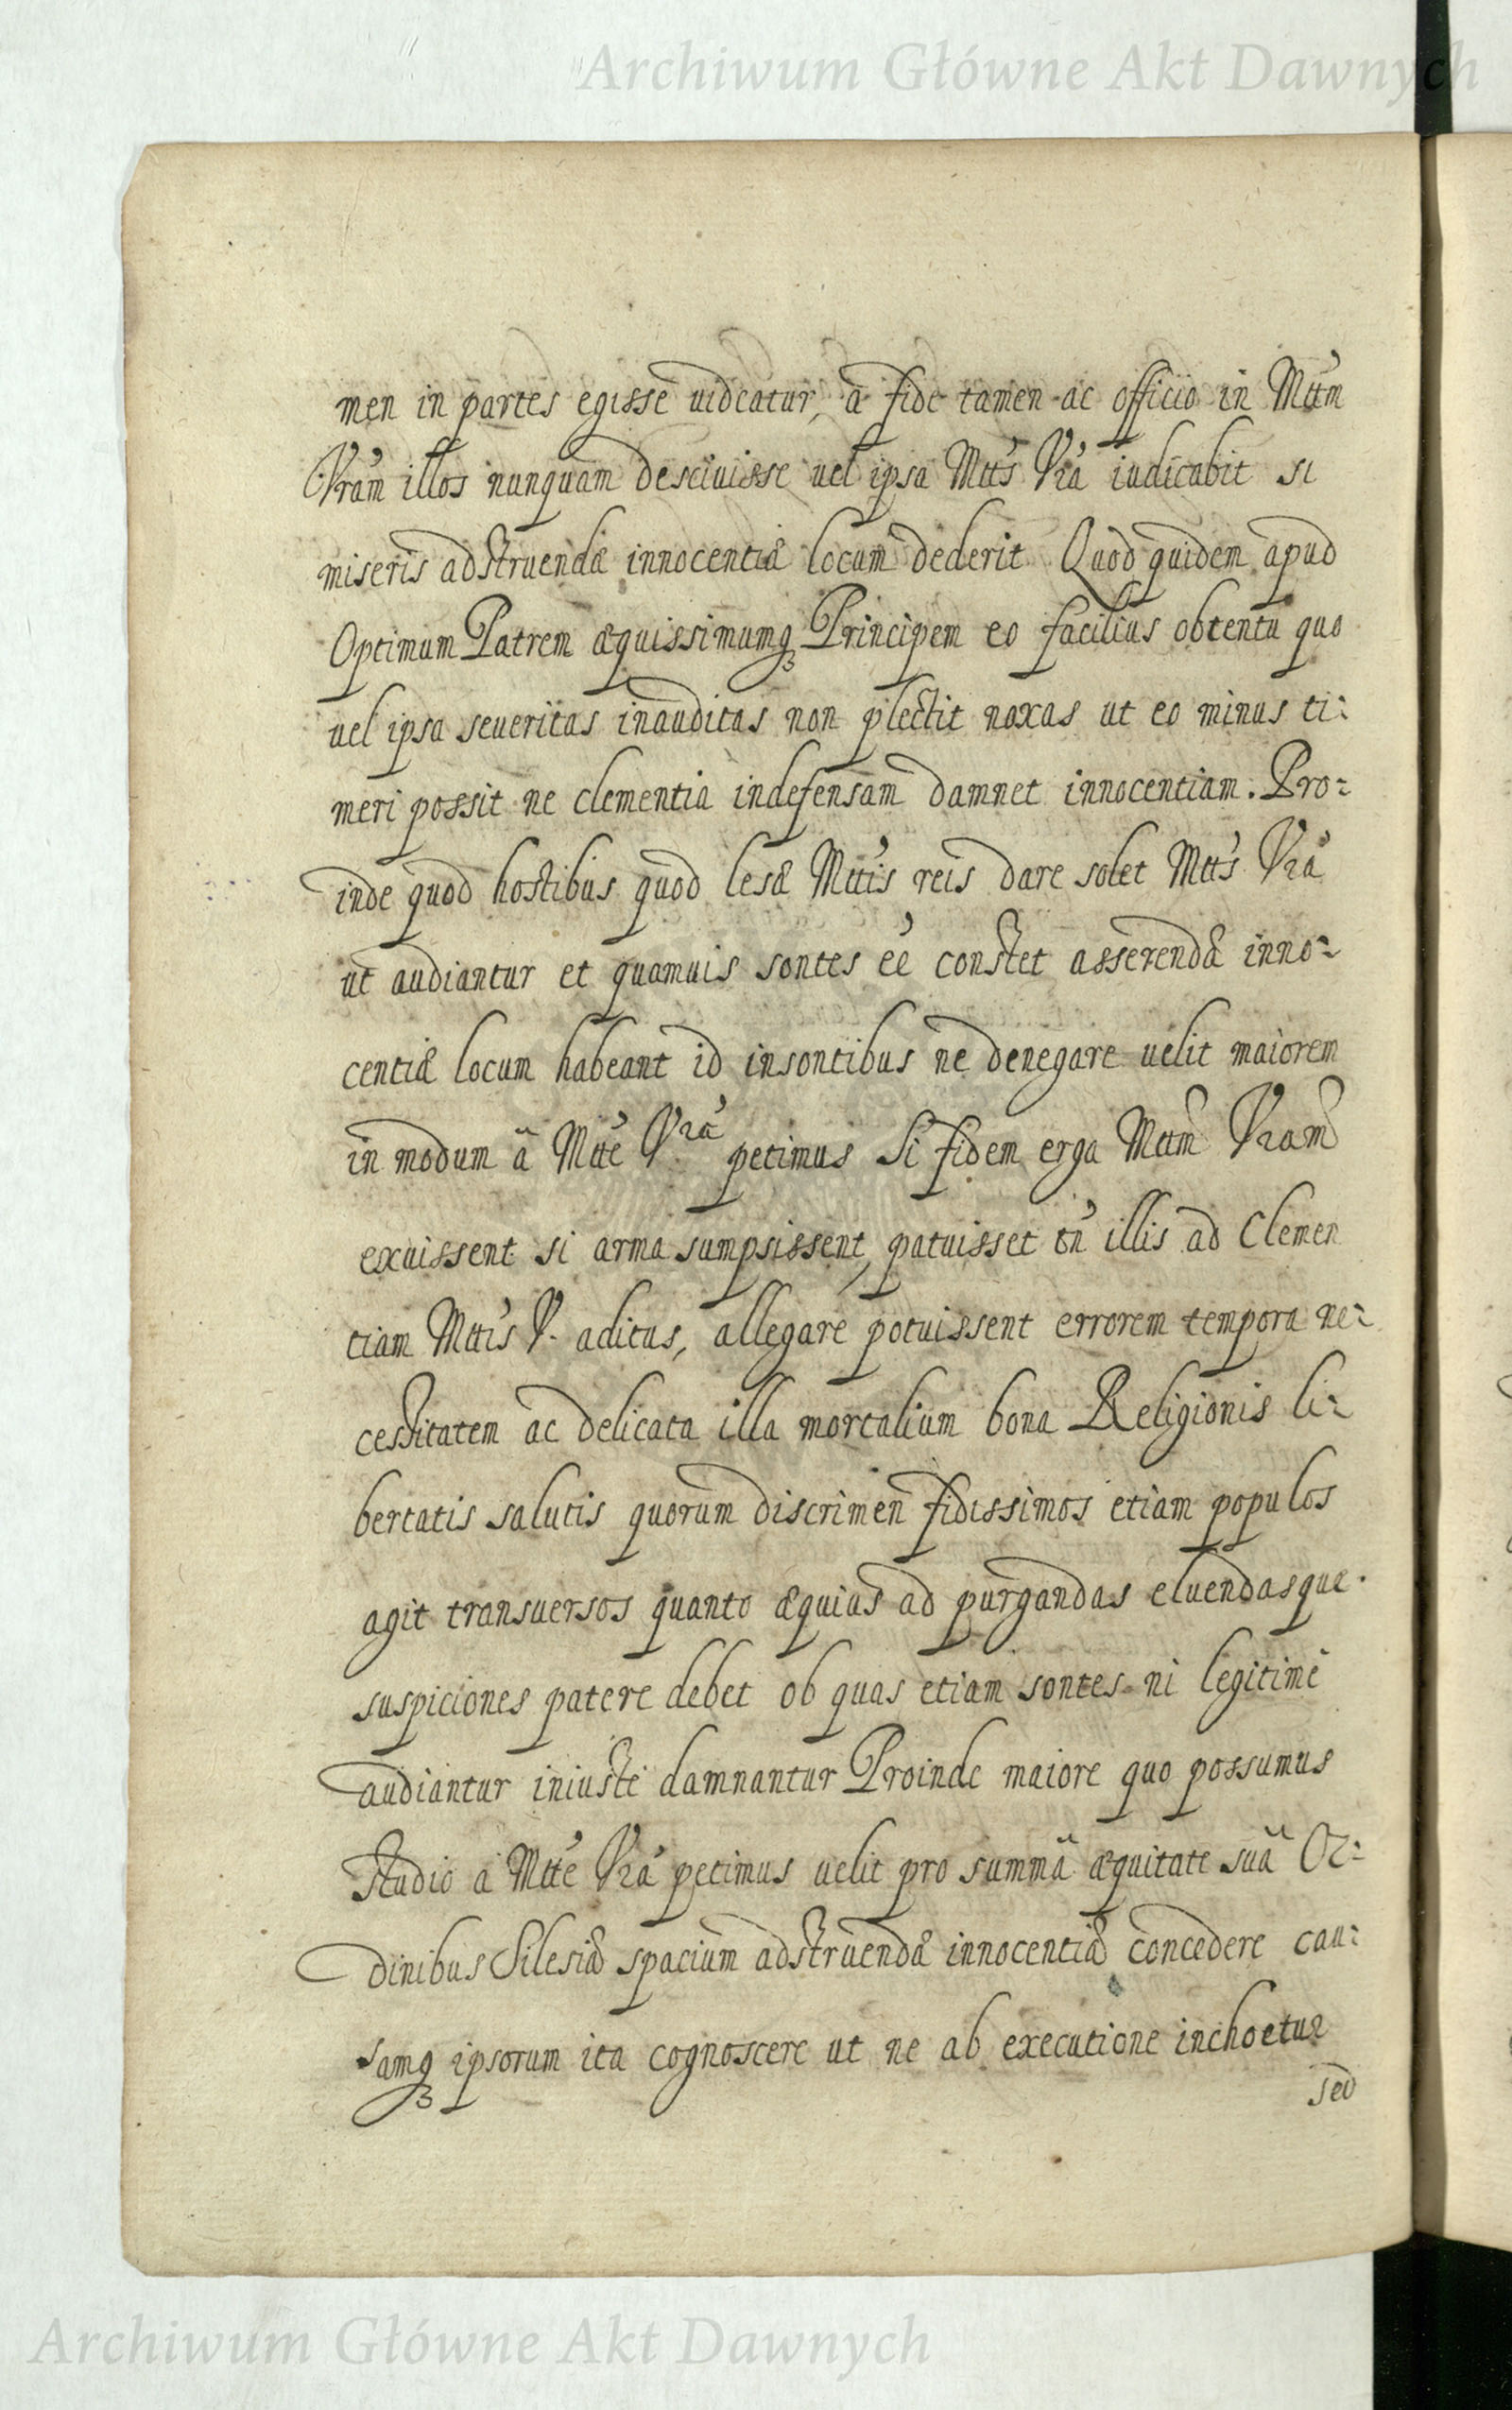 Archiwum Główne Akt Dawnych
men in partes egisse uideatur, à fide tamen ac officio in Mttm
Vram illos nunquam desciuisse uel ipsa Mtts Vra iudicabit si
miseris adstruendæ innocentiæ locum dederit Quod quidem apud
Optimum Patrem æquissimumq Principem eo facilius obtentu quo
uel ipsa seueritas inauditas non plectit noxas ut eo minus ti:
meri possit ne clementia indefensam damnet innocentiam. Pro:
inde quod hostibus quod lesæ Mttis reis dare solet Mtts Vra
ut audiantur et quamuis sontes eè constet asserendæ inno:
centiæ locum habeant id insontibus ne denegare uelit maiorem
in modum à Mtte Vra petimus Si fidem erga Mttm Vram
exuissent si arma sumpsissent, patuisset tn illis ad Clemen
tiam Mttis V. aditus, allegare potuissent errorem tempora ne:
cessitatem ac delicata illa mortalium bona Religionis li:
bertatis salutis quorum discrimen fidissimos etiam populos
agit transuersos quanto æquius ad purgandas eluendasque
suspiciones patere debet ob quas etiam sontes ni legitimè
audiantur iniustè damnantur Proinde maiore quo possumus
studio à Mtte Vra petimus uelit pro summã æquitate suã Or:
dinibus Silesiæ spacium adstruendæ innocentiæ concedere cau:
samq ipsorum ita cognoscere ut ne ab executione inchoetur
sed
Archiwum Główne Akt Dawnych